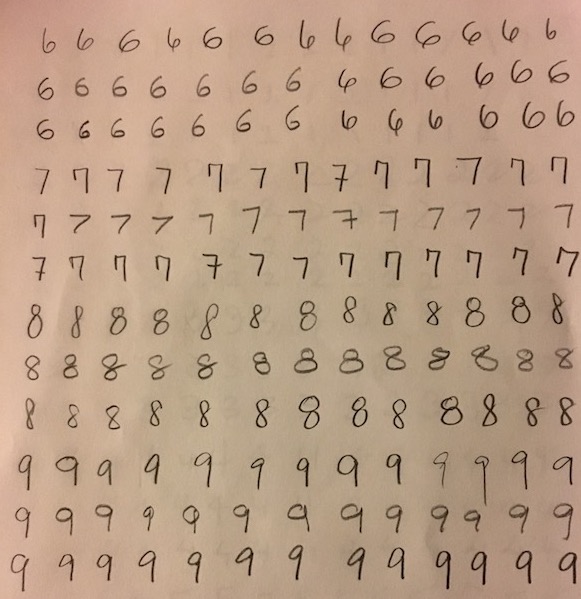 6 6 6 6 6 6 6 6 6 6 6 6 6
6 6 6 6 6 6 6 6 6 6 6 6 6
6 6 6 6 6 6 6 6 6 6 6 6 6
7 7 7 7 7 7 7 7 7 7 7 7 7
7 7 7 7 7 7 7 7 7 7 7 7 7
7 7 7 7 7 7 7 7 7 7 7 7 7
8 8 8 8 8 8 8 8 8 8 8 8 8
8 8 8 8 8 8 8 8 8 8 8 8 8
8 8 8 8 8 8 8 8 8 8 8 8 8
9 9 9 9 9 9 9 9 9 9 9 9 9
9 9 9 9 9 9 9 9 9 9 9 9 9
9 9 9 9 9 9 9 9 9 9 9 9 9